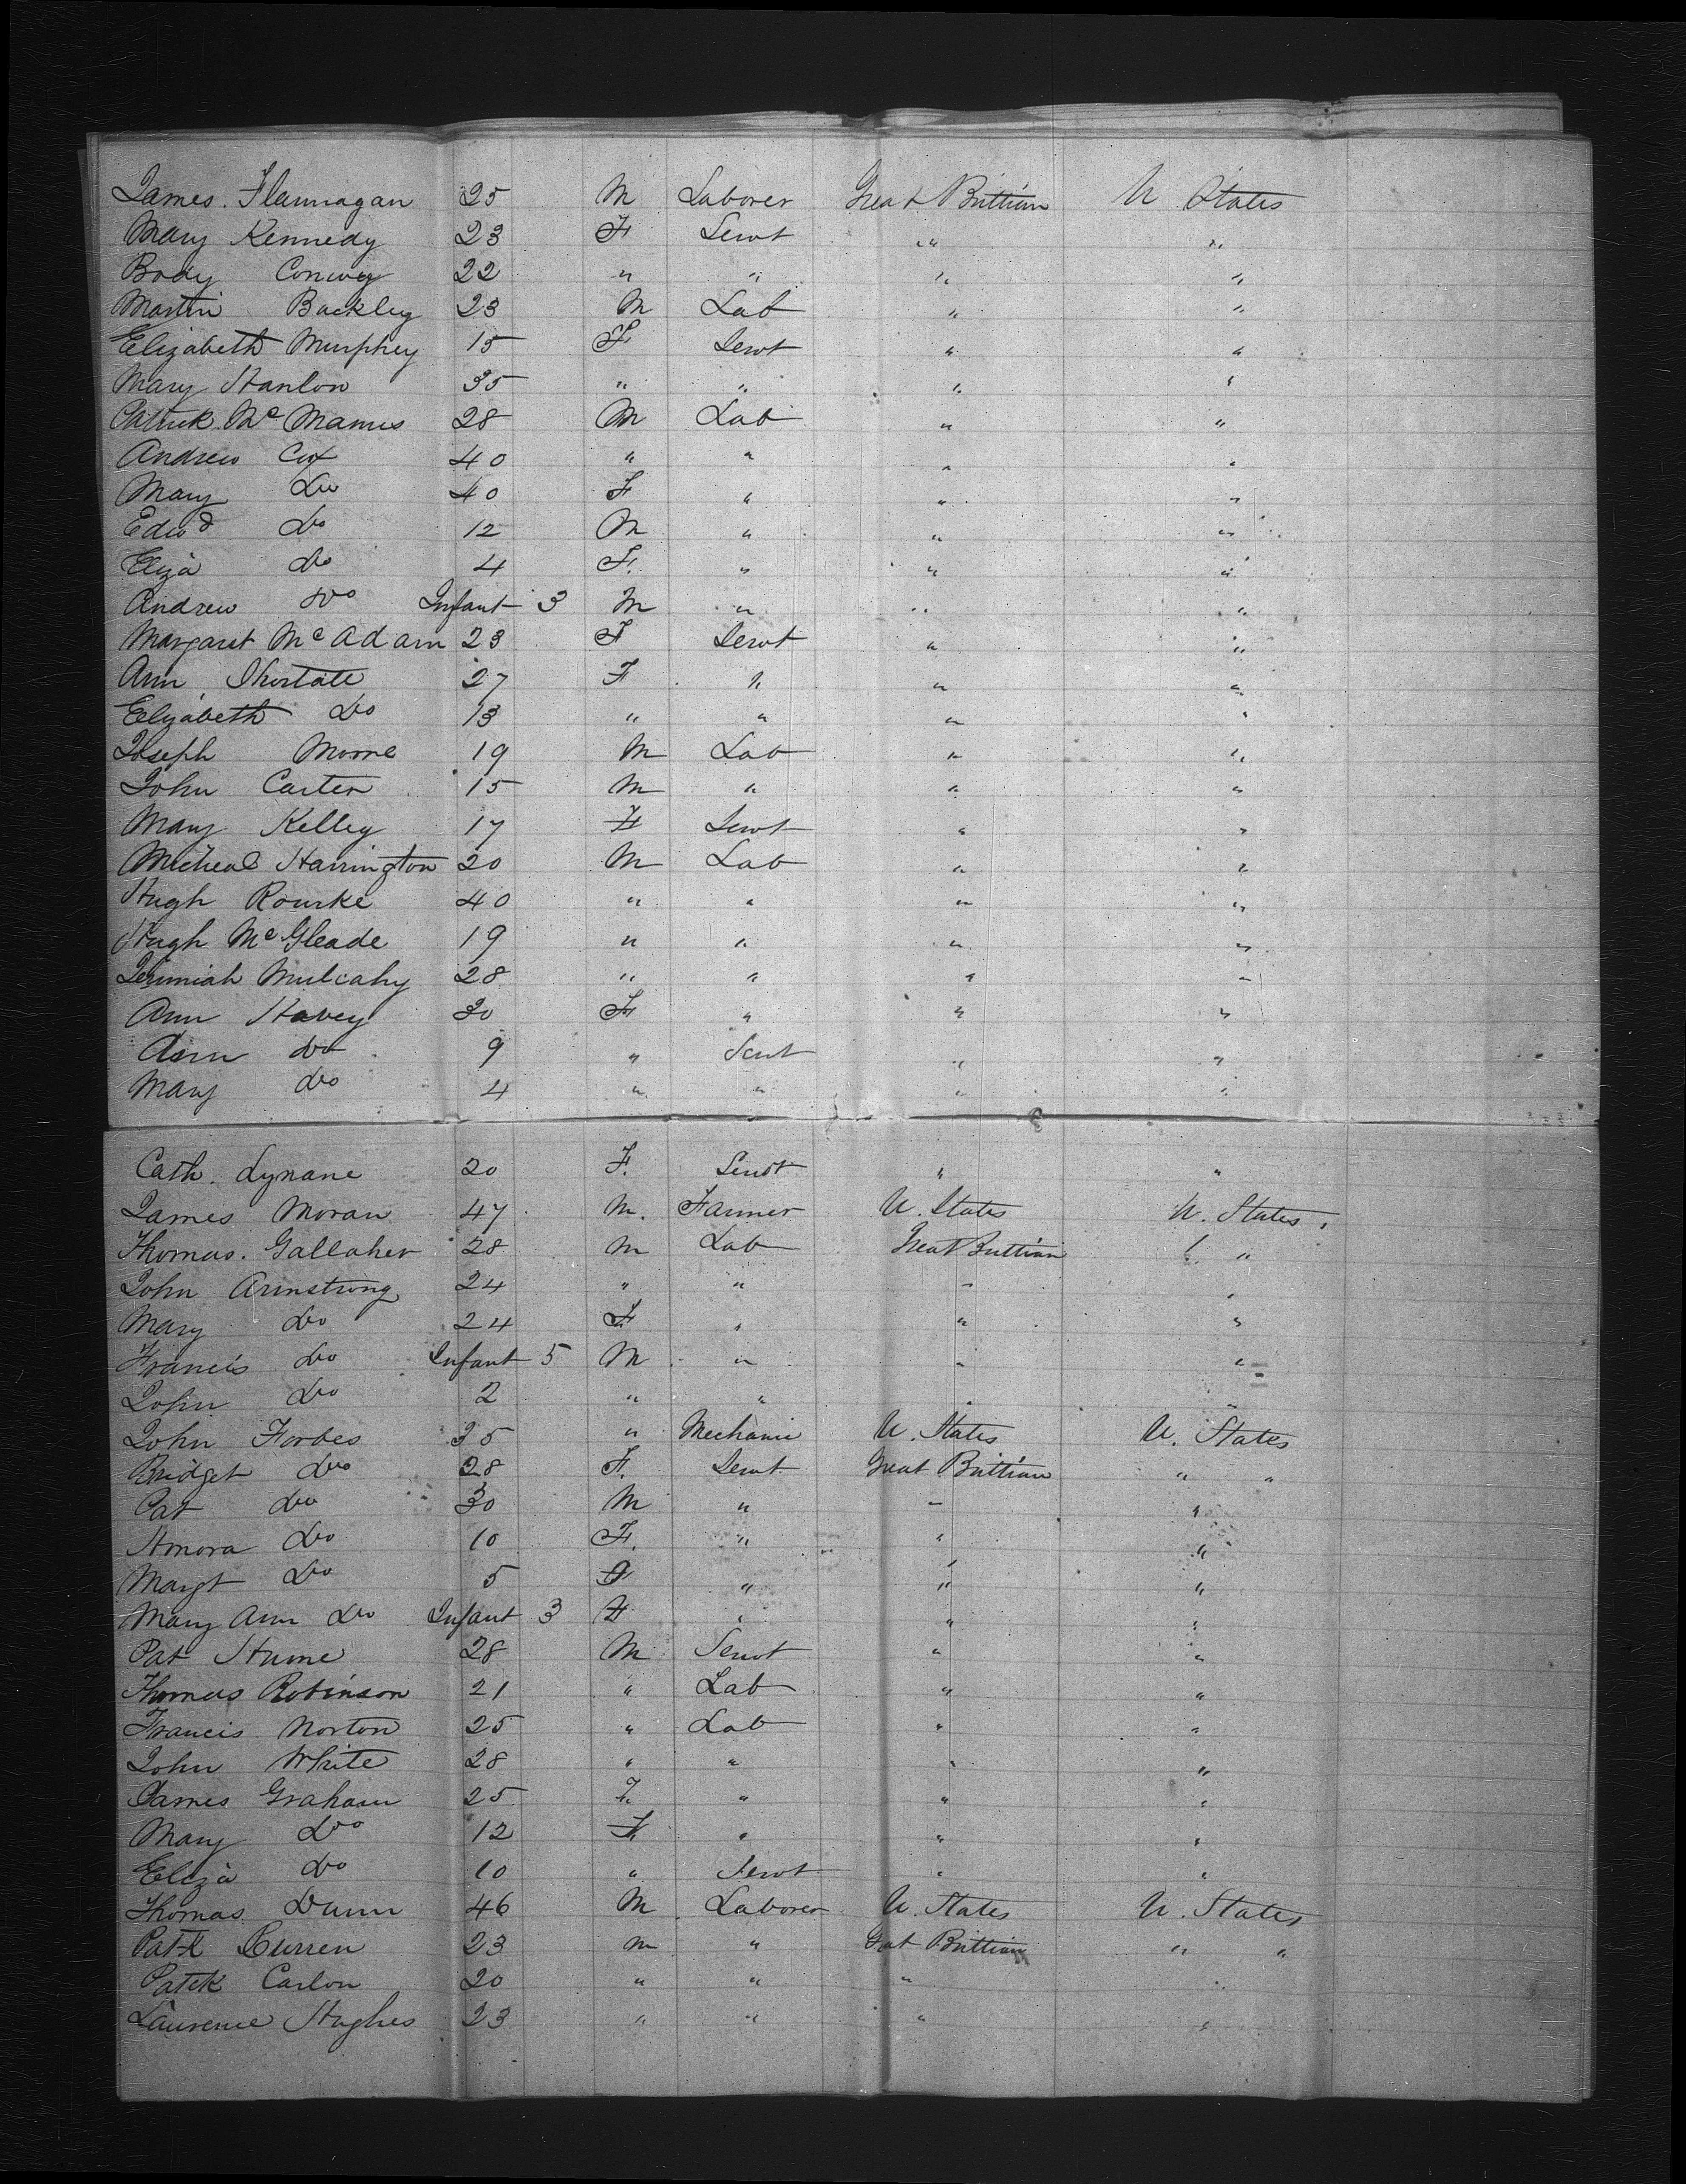 James. Flannagan 25 M Laborer Great Brittian U States
Mary Kennedy 23 F Servt " "
Body Conway 22 " " " "
Martin Backley 23 M Lab " "
Elizabeth Murphey 15 F Servt " "
Mary Hanlon 35 " " " "
Patrick Mc Manus 28 M Lab " "
Andrew Cox 40 " " " "
Mary Do 40 F " " "
Edwd Do 12 M " " "
Eliza Do 4 F. " " "
Andrew Do Infant 3 M " " "
Margaret Mc Adam 23 F Servt " "
Ann 27 F " " "
Elizabeth Do 13 " " " "
Joseph Moore 19 M Lab " "
John Carter 15 M " " "
Mary Kelley 17 F Servt " "
Micheal Harrington 20 M Lab " "
Hugh Rourke 40 " " " "
Hugh Mc Gleade 19 " " " "
Jerimiah Mulcahy 28 " " " "
Ann Havey 30 F " " "
Ann Do 9 " Servt " "
Mary Do 4 " " " "
Cath. Lynane 20 F. Servt " "
James Moran 47 M. Farmer U. States U. States.
Thomas. Gallaher 28 M Lab Great Brittian "
John Armstrong 24 " " " "
Mary Do 24 F " " "
Francis Do Infant 5 M " " "
John Do 2 " " " "
John Forbes 35 " Mechanic U. States U. States
Bridget Do 28 F. Servt Great Brittian " "
Pat Do 30 M " " "
Hnora Do 10 F. " " "
Margt Do 5 F " " "
Mary Ann Do Infant 3 F " " "
Pat Hume 28 M Servt " "
Thomas Robinson 21 " Lab " "
Francis Norton 25 " Lab " "
John White 28 " " " "
James Graham 25 F. " " "
Mary Do 12 F " " "
Eliza Do 10 " Servt " "
Thomas Dunn 46 M Laborer U. States U. States
Patk Curren 23 M " Grat Brittian " "
Patck Carlon 20 " " " "
Laurence Hughes 23 " " " "